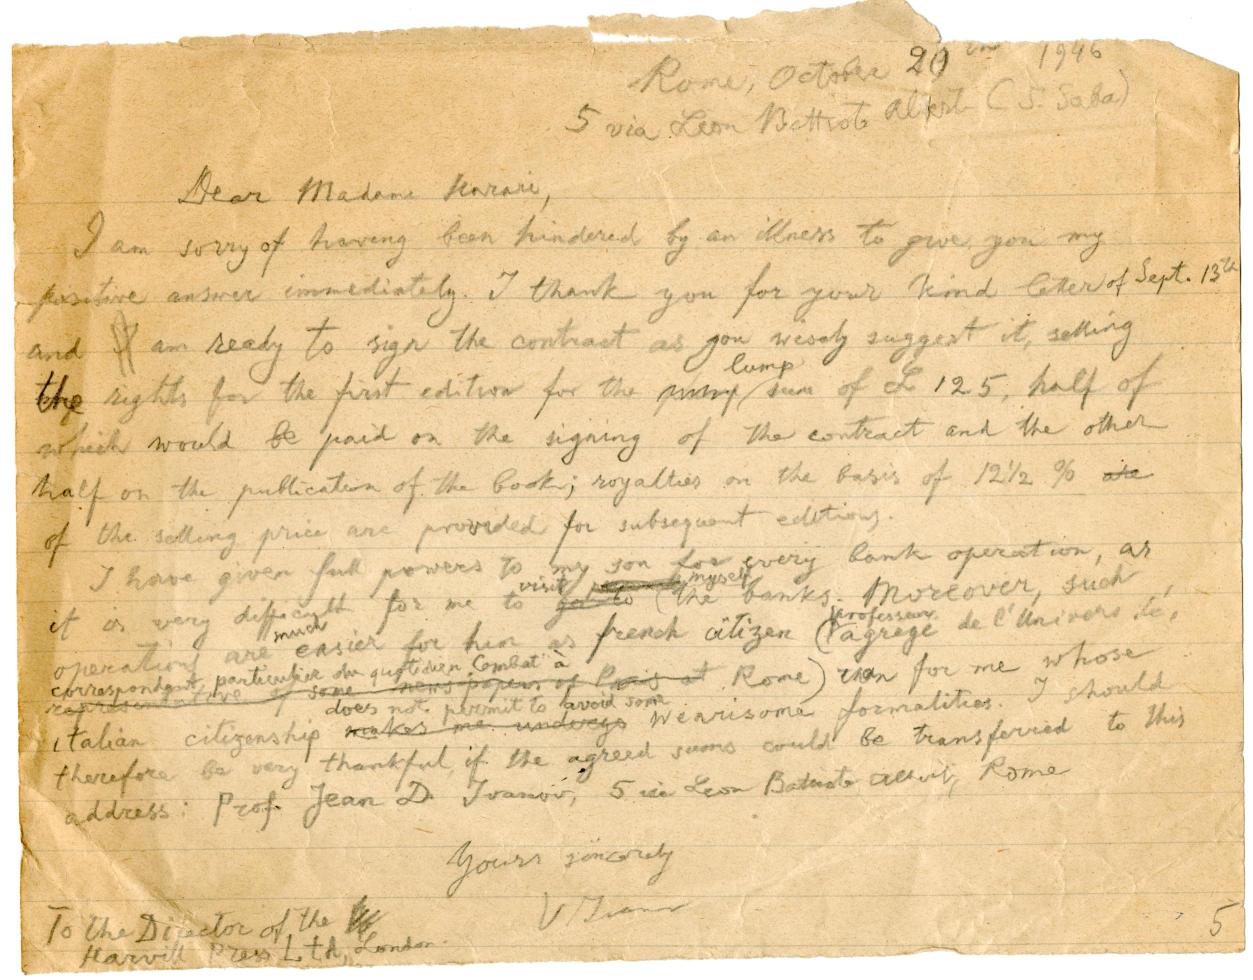 Rome, October 20th 1946
5 via Leon Battista Alberti (S. Saba)
Dear Madame Harari,
I am sorry of having been hindered by an illness to give you my
positive answer immediately. I thank you for your kind letter of Sept. 13th
and I am ready to sign the contract as you wisely suggest it, selling
lump
the rights for the first edition for the sum of £ 125, half of
which would be paid on the signing of the contract and the other
half on the publication of the book; royalties on the basis of 12 1/2 % are
of the selling price are provided for subsequent editions.
I have given full powers to my son for every bank operation, as
visit myself
it is very difficult for me to go to the banks. Moreover, such
much professeur
operations are easier for him as french citizen (agrégé de l'Université,
correspondant particulier du quotidien Combat à
representative of some newspapers of Paris at Rome) than for me whose
does not permit to avoid some
italian citizenship makes me undergo wearisome formalities. I should
therefore be very thankful, if the agreed sums could be transferred to this
address: Prof. Jean D. Ivanov, 5 via Leon Battista Alberti, Rome
Yours sincerely
V Ivanov
To the Director of the
Harvill Press Ltd, London.
5